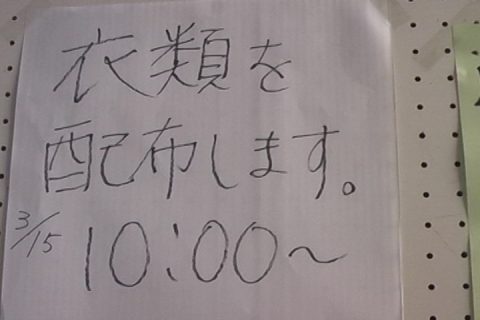 衣類を
配布します。
3/15 10:00~